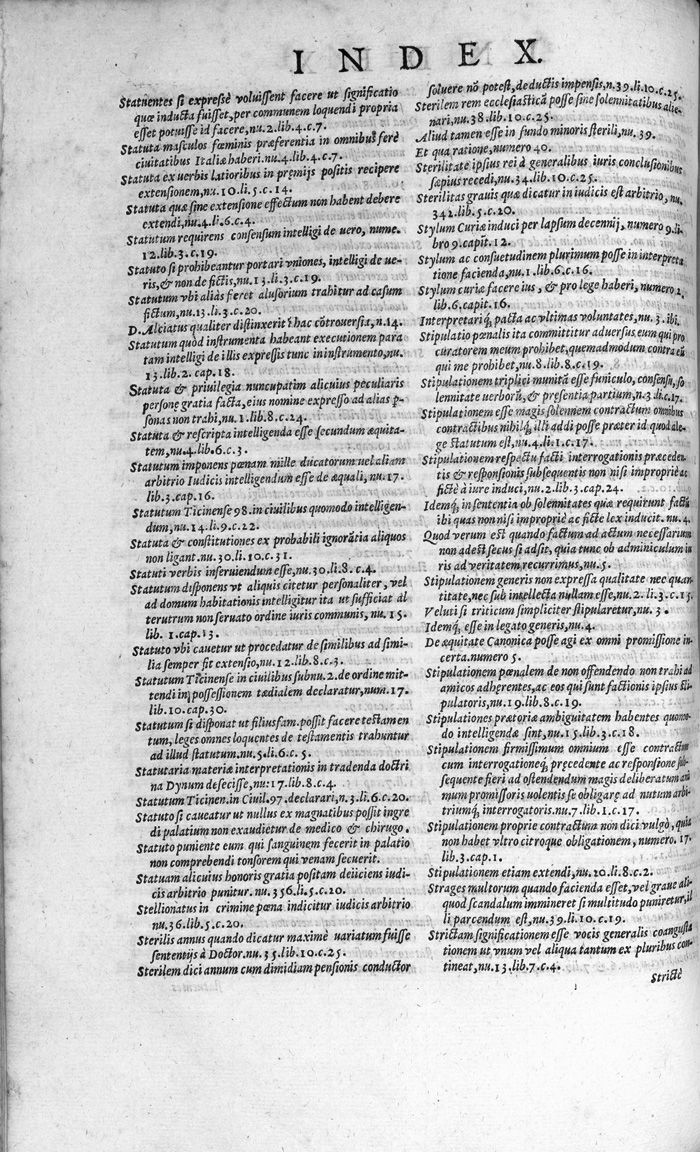 INDEX.
Statuentes si expressè voluissent facere ut significatio
quæ inducta fuisset, per communem loquendi propria
esset potuisse id facere, nu.2.lib.4.c.7.
Statuta masculos fœminis præferentia in omnibus ferè
ciuitatibus Italiæ haberi. nu.4.lib.4.c.7.
Statuta ex uerbis latioribus in premijs positis recipere
extensionem, nu.10.li.5.c.14.
Statuta quæ sine extensione effectum non habent debere
extendi, nu.4.li.6.c.4.
Statutum requirens consensum intelligi de uero, nume.
12.lib.3.c.19.
Statuto si prohibeantur portari vniones, intelligi de ue-
ris, & non de fictis, nu.13.li.3.c.19.
Statutum vbi aliâs fieret alusorium trahitur ad casum
fictum, nu.13.li.3.c.20.
D. Alciatus qualiter distinxerit ĩ hac cõtrouersia, n.14.
Statutum quòd instrumenta habeant executionem para
tam intelligi de illis expressis tunc in instrumento, nu.
13.lib.2.cap.18.
Statuta & priuilegia nuncupatim alicuius peculiaris
personę gratia facta, eius nomine expresso ad alias p̃-
sonas non trahi, nu.1.lib.8.c.24.
Statuta & rescripta intelligenda esse secundum æquita-
tem, nu.4.lib.6.c.3.
Statutum imponens pœnam mille ducatorum uel aliam
arbitrio Iudicis intelligendum esse de æquali, nu.17.
lib.3.cap.16.
Statutum Ticinense 98. in ciuilibus quomodo intelligen-
dum, nu.14.li.9.c.22.
Statuta & constitutiones ex probabili ignorãtia aliquos
non ligant. nu.30.li.10.c.31.
Statuti verbis inseruiendum esse, nu.30.li.8.c.4.
Statutum disponens vt aliquis citetur personaliter, vel
ad domum habitationis intelligitur ita ut sufficiat al
terutrum non seruato ordine iuris communis, nu.15.
lib.1.cap.13.
Statuto vbi cauetur ut procedatur de similibus ad simi-
lia semper fit extensio, nu.12.lib.8.c.3.
Statutum Ticinense in ciuilibus sub nu.2. de ordine mit-
tendi in possessionem tædialem declaratur, num.17.
lib.10.cap.30.
Statutum si disponat ut filiusfam. possit facere testamen
tum, leges omnes loquentes de testamentis trahuntur
ad illud statutum. nu.5.li.6.c.5.
Statutaria materiæ interpretationis in tradenda doctri
na Dynum defecisse, nu:17.lib.8.c.4.
Statutum Ticinen. in Ciuil. 97. declarari, n.3.li.6.c.20.
Statuto si caueatur ut nullus ex magnatibus possit ingre
di palatium non exaudietur de medico & chirugo.
Statuto puniente eum qui sanguinem fecerit in palatio
non comprehendi tonsorem qui venam secuerit.
Statuam alicuius honoris gratia positam deijciens iudi-
cis arbitrio punitur. nu.356.li.5.c.20.
Stellionatus in crimine pœna indicitur iudicis arbitrio
nu.36.lib.5.c.20.
Sterilis annus quando dicatur maximè uariatum fuisse
sententijs à Doctor. nu.35.lib.10.c.25.
Sterilem dici annum cum dimidiam pensionis conductor
soluere nõ potest, deductis impensis, n.39.li.10.c.25.
Sterilem rem ecclesiasticã posse sine solennitatibus alie-
nari, nu.38.lib.10.c.25.
Aliud tamen esse in fundo minoris sterili, nu.39.
Et qua ratione, numero 40.
Sterilitate ipsius rei à generalibus iuris conclusionibus
sæpius recedi, nu.34.lib.10.c.25.
Sterilitas grauis quæ dicatur in iudicis est arbitrio, nu.
342.lib.5.c.20.
Stylum Curiæ induci per lapsum decennij, numero 9.li-
bro 9.capit.12.
Stylum ac consuetudinem plurimum posse in interpreta
tione facienda, nu.1.lib.6.c.16.
Stylum curiæ facere ius, & pro lege haberi, numero 2.
lib.6.capit.16.
Interpretariq́, pacta ac vltimas voluntates, nu.3.ibi.
Stipulatio pœnalis ita committitur aduersus eum qui pro
curatorem meum prohibet, quemadmodum contra eũ
qui me prohibet, nu.8.lib.8.c.19.
Stipulationem triplici munitã esse funiculo, consensu, so
lennitate uerborũ, & presentia partium, n.3.li.c.17.
Stipulationem esse magis solennem contractum omnibus
contractibus nihilq́, illi addi posse præter id quod ale-
ge statutum est, nu.4.li.1.c.17.
Stipulationem respectu facti interrogationis præceden
tis & responsionis subsequentis non nisi impropriè ac
fictè à iure induci, nu.2.lib.3.cap.24.
Idemq́, in sententia ob solennitates quæ requirunt factũ
ibi quas non nisi impropriè ac fictè lex inducit. nu.4.
Quod verum est quando factum ad actum necessarium
non adest secus si adsit, quia tunc ob adminiculum iu
ris ad veritatem recurrimus, nu.5.
Stipulationem generis non expressa qualitate nec quan
titate, nec sub intellecta nullam esse, nu.2.li.3.c.13.
Veluti si triticum simpliciter stipularetur, nu.3.
Idemq́, esse in legato generis, nu.4.
De æquitate Canonica posse agi ex omni promissione in-
certa. numero 5.
Stipulationem pœnalem de non offendendo non trahi ad
amicos adherentes, ac eos qui sunt factionis ipsius sti-
pulatoris, nu.19.lib.8.c.19.
Stipulationes prætoriæ ambiguitatem habentes quomo-
do intelligendæ sint, nu.15.lib.3.c.18.
Stipulationem firmissimum omnium esse contractum
cum interrogationeq́, pręcedente ac responsione sub-
sequente fieri ad ostendendum magis deliberatum ani
mum promissoris uolentis se obligare ad nutum arbi-
triumq́, interrogatoris. nu.7.lib.1.c.17.
Stipulationem proprie contractum non dici vulgò, quia
non habet vltro citroque obligationem, numero.17.
lib.3.cap.1.
Stipulationem etiam extendi, nu.20.li.8.c.2.
Strages multorum quando facienda esset, vel graue ali-
quod scandalum immineret si multitudo puniretur, il
li parcendum est, nu.39.li.10.c.19.
Strictam significationem esse vocis generalis coangusta
tionem ut vnum vel aliqua tantum ex pluribus con-
tineat, nu.13.lib.7.c.4.
Strictè